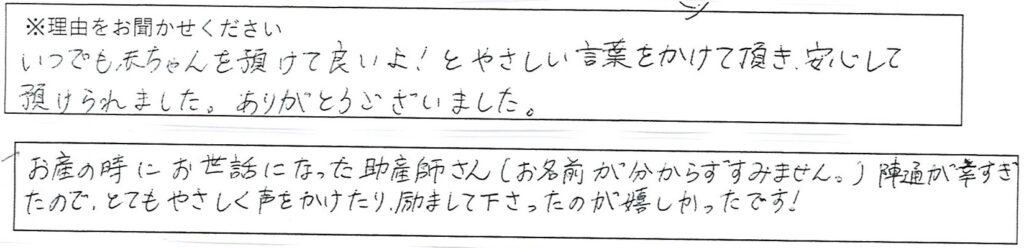 ※理由をお聞かせください
いつでも赤ちゃんを預けて良いよ！とやさしい言葉をかけて頂き、安心して
預けられました。ありがとうございました。
お産の時にお世話になった助産師さん（お名前が分からずすみません。）陣通が幸すぎ
たので、とてもやさしく声をかけたり、励まして下さったのが嬉しかったです！